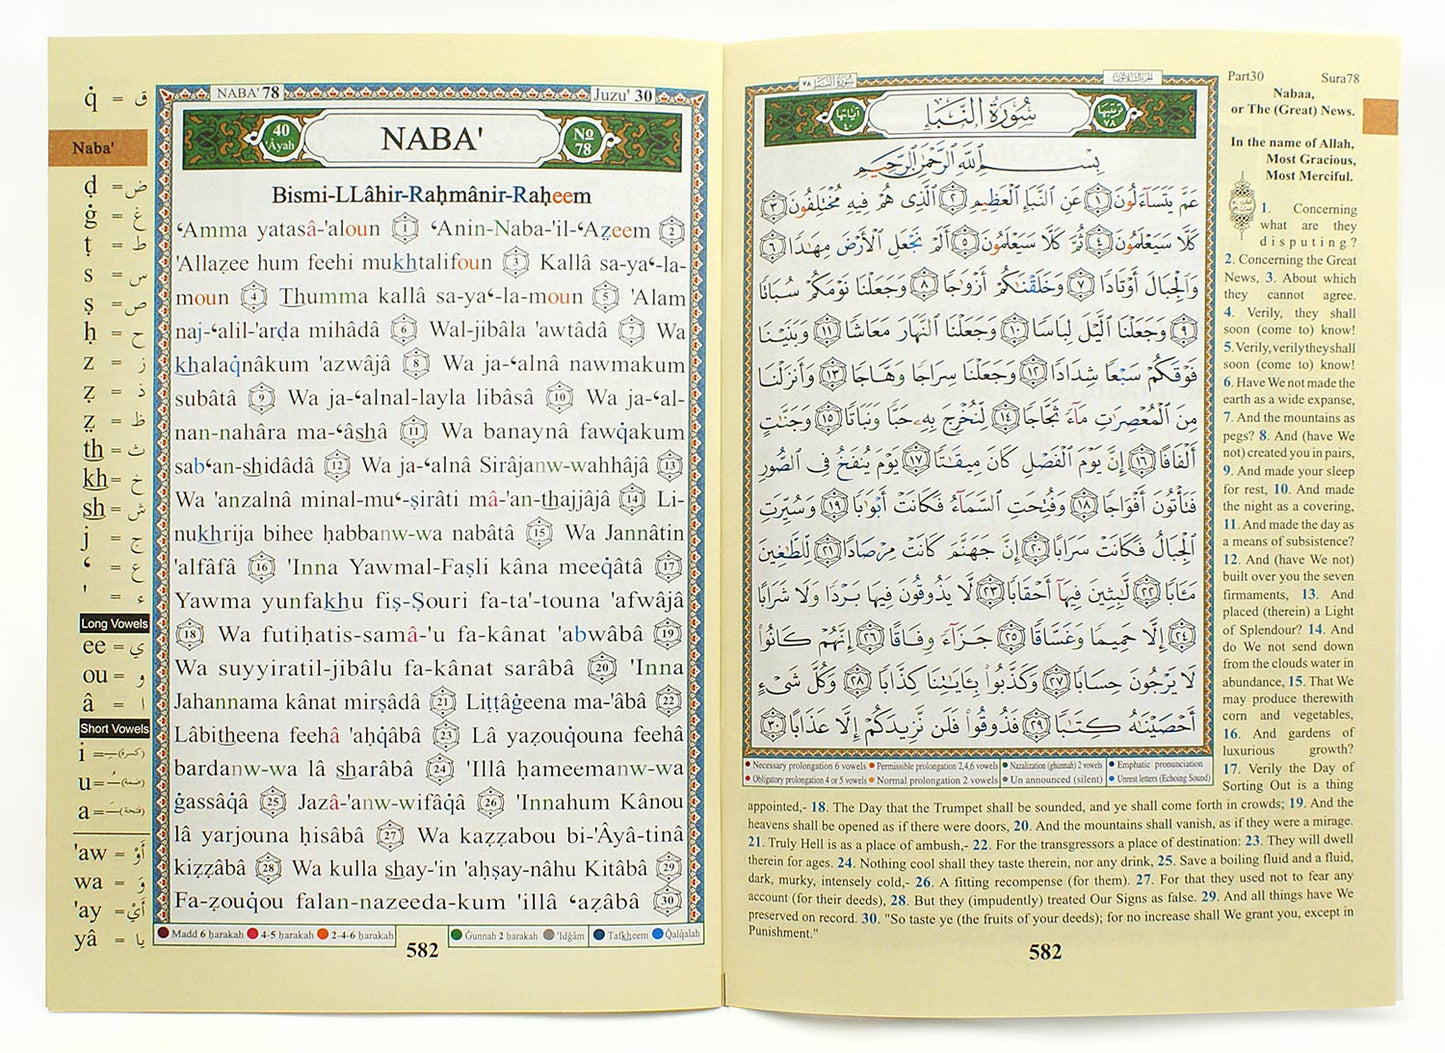 q̇ = ق
Naba'
ḍ = ض
ġ = غ
ṭ = ط
s = س
ṣ = ص
ḥ = ح
z = ز
ẓ = ذ
ẓ̈ = ظ
th = ث
kh = خ
sh = ش
j = ج
‘ = ع
' = ء
Long Vowels
ee = ي
ou = و
â = ا
Short Vowels
i = ـِ (كسرة)
u = ـُ (ضمة)
a = ـَ (فتحة)
'aw = أَوْ
wa = وَ
'ay = أَيْ
yâ = يا
NABA' 78
Juzu' 30
40 'Âyah
NABA'
No 78
Bismi-LLâhir-Raḥmânir-Raḥeem
‘Amma yatasâ-'aloun 1 ‘Anin-Naba-'il-‘Aẓeem 2
'Allaẓee hum feehi mukhtalifoun 3 Kallâ sa-ya‘-la-
moun 4 Thumma kallâ sa-ya‘-la-moun 5 'Alam
naj-‘alil-'arḍa mihâdâ 6 Wal-jibâla 'awtâdâ 7 Wa
khalaq̇nâkum 'azwâjâ 8 Wa ja-‘alnâ nawmakum
subâtâ 9 Wa ja-‘alnal-layla libâsâ 10 Wa ja-‘al-
nan-nahâra ma-‘âshâ 11 Wa banaynâ fawq̇akum
sab‘an-shidâdâ 12 Wa ja-‘alnâ Sirâjanw-wahhâjâ 13
Wa 'anzalnâ minal-mu‘-ṣirâti mâ-'an-thajjâjâ 14 Li-
nukhrija bihee ḥabbanw-wa nabâtâ 15 Wa Jannâtin
'alfâfâ 16 'Inna Yawmal-Faṣli kâna meeq̇âtâ 17
Yawma yunfakhu fiṣ-Ṣouri fa-ta'-touna 'afwâjâ
18 Wa futiḥatis-samâ-'u fa-kânat 'abwâbâ 19
Wa suyyiratil-jibâlu fa-kânat sarâbâ 20 'Inna
Jahannama kânat mirṣâdâ 21 Liṭṭâġeena ma-'âbâ 22
Lâbitheena feehâ 'aḥq̇âbâ 23 Lâ yaẓouq̇ouna feehâ
bardanw-wa lâ sharâbâ 24 'Illâ ḥameemanw-wa
ġassâq̇â 25 Jazâ-'anw-wifâq̇â 26 'Innahum Kânou
lâ yarjouna ḥisâbâ 27 Wa kaẓẓabou bi-'Âyâ-tinâ
kiẓẓâbâ 28 Wa kulla shay-'in 'aḥṣay-nâhu Kitâbâ 29
Fa-ẓouq̇ou falan-nazeeda-kum 'illâ ‘aẓâbâ 30
Madd 6 ḥarakah 4-5 ḥarakah 2-4-6 ḥarakah Ġunnah 2 ḥarakah 'Idġâm Tafkheem Q̇alq̇alah
582
سُورَةُ النَّبَإِ ٧٨
الجزء الثلاثون
ترتيبها ٧٨
سُورَةُ النَّبَإِ
آياتها ٤٠
بِسْمِ اللَّهِ الرَّحْمَٰنِ الرَّحِيمِ
عَمَّ يَتَسَآءَلُونَ ١ عَنِ النَّبَإِ الْعَظِيمِ ٢ الَّذِى هُمْ فِيهِ مُخْتَلِفُونَ ٣
كَلَّا سَيَعْلَمُونَ ٤ ثُمَّ كَلَّا سَيَعْلَمُونَ ٥ أَلَمْ نَجْعَلِ الْأَرْضَ مِهَٰدًا ٦
وَالْجِبَالَ أَوْتَادًا ٧ وَخَلَقْنَٰكُمْ أَزْوَٰجًا ٨ وَجَعَلْنَا نَوْمَكُمْ سُبَاتًا
٩ وَجَعَلْنَا الَّيْلَ لِبَاسًا ١٠ وَجَعَلْنَا النَّهَارَ مَعَاشًا ١١ وَبَنَيْنَا
فَوْقَكُمْ سَبْعًا شِدَادًا ١٢ وَجَعَلْنَا سِرَاجًا وَهَّاجًا ١٣ وَأَنزَلْنَا
مِنَ الْمُعْصِرَٰتِ مَآءً ثَجَّاجًا ١٤ لِّنُخْرِجَ بِهِۦ حَبًّا وَنَبَاتًا ١٥ وَجَنَّٰتٍ
أَلْفَافًا ١٦ إِنَّ يَوْمَ الْفَصْلِ كَانَ مِيقَٰتًا ١٧ يَوْمَ يُنفَخُ فِى الصُّورِ
فَتَأْتُونَ أَفْوَاجًا ١٨ وَفُتِحَتِ السَّمَآءُ فَكَانَتْ أَبْوَٰبًا ١٩ وَسُيِّرَتِ
الْجِبَالُ فَكَانَتْ سَرَابًا ٢٠ إِنَّ جَهَنَّمَ كَانَتْ مِرْصَادًا ٢١ لِّلطَّٰغِينَ
مَـَٔابًا ٢٢ لَّٰبِثِينَ فِيهَآ أَحْقَابًا ٢٣ لَّا يَذُوقُونَ فِيهَا بَرْدًا وَلَا شَرَابًا
٢٤ إِلَّا حَمِيمًا وَغَسَّاقًا ٢٥ جَزَآءً وِفَاقًا ٢٦ إِنَّهُمْ كَانُوا۟
لَا يَرْجُونَ حِسَابًا ٢٧ وَكَذَّبُوا۟ بِـَٔايَٰتِنَا كِذَّابًا ٢٨ وَكُلَّ شَىْءٍ
أَحْصَيْنَٰهُ كِتَٰبًا ٢٩ فَذُوقُوا۟ فَلَن نَّزِيدَكُمْ إِلَّا عَذَابًا ٣٠
Necessary prolongation 6 vowels Permissible prolongation 2,4,6 vowels Nazalization (ghunnah) 2 vowels Emphatic pronunciation
Obligatory prolongation 4 or 5 vowels Normal prolongation 2 vowels Un announced (silent) Unrest letters (Echoing Sound)
Part30 Sura78
Nabaa,
or The (Great) News.
In the name of Allah,
Most Gracious,
Most Merciful.
1. Concerning
what are they
disputing?
2. Concerning the Great
News, 3. About which
they cannot agree.
4. Verily, they shall
soon (come to) know!
5. Verily, verily they shall
soon (come to) know!
6. Have We not made the
earth as a wide expanse,
7. And the mountains as
pegs? 8. And (have We
not) created you in pairs,
9. And made your sleep
for rest, 10. And made
the night as a covering,
11. And made the day as
a means of subsistence?
12. And (have We not)
built over you the seven
firmaments, 13. And
placed (therein) a Light
of Splendour? 14. And
do We not send down
from the clouds water in
abundance, 15. That We
may produce therewith
corn and vegetables,
16. And gardens of
luxurious growth?
17. Verily the Day of
Sorting Out is a thing
appointed,- 18. The Day that the Trumpet shall be sounded, and ye shall come forth in crowds; 19. And the
heavens shall be opened as if there were doors, 20. And the mountains shall vanish, as if they were a mirage.
21. Truly Hell is as a place of ambush,- 22. For the transgressors a place of destination: 23. They will dwell
therein for ages. 24. Nothing cool shall they taste therein, nor any drink, 25. Save a boiling fluid and a fluid,
dark, murky, intensely cold,- 26. A fitting recompense (for them). 27. For that they used not to fear any
account (for their deeds), 28. But they (impudently) treated Our Signs as false. 29. And all things have We
preserved on record. 30. "So taste ye (the fruits of your deeds); for no increase shall We grant you, except in
Punishment."
582